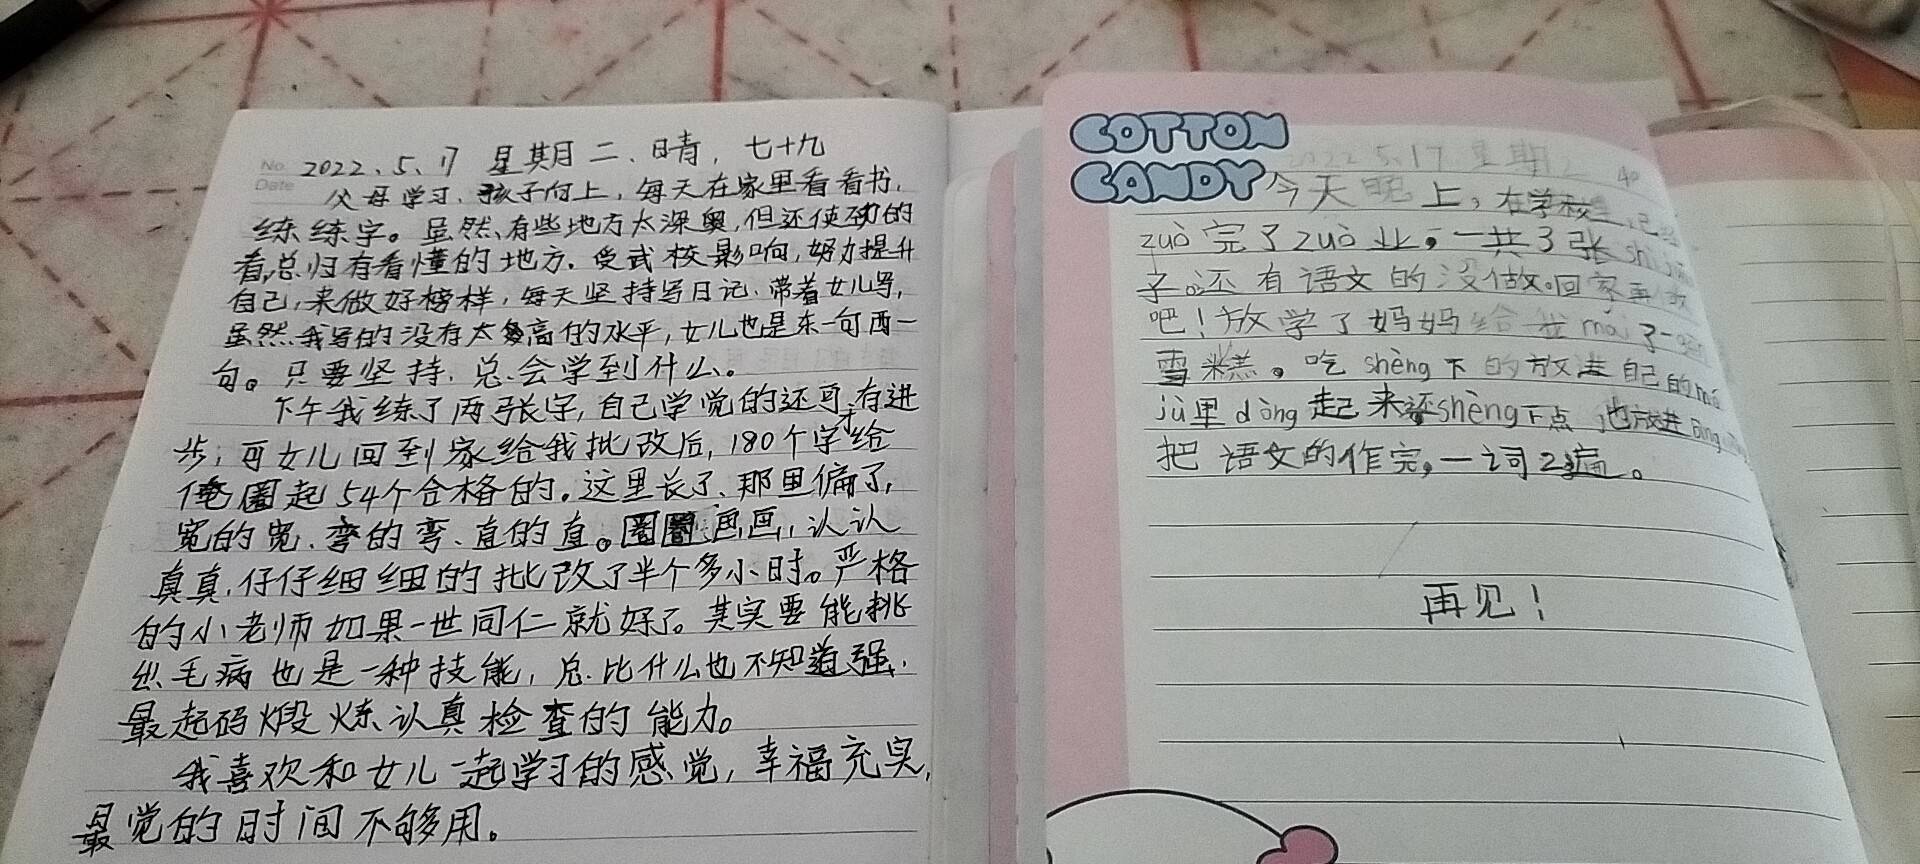 No.
Date
2022、5、17 星期二、晴，七十九
父母学习、孩子向上，每天在家里看看书，
练练字。虽然、有些地方太深奥，但还使劲的
看，总归有看懂的地方。受武校影响，努力提升
自己，来做好榜样，每天坚持写日记、带着女儿写，
虽然、我写的没有太高的水平，女儿也是东一句西一
句。只要坚持、总会学到什么。
下午我练了两张字，自己学觉的还可才有进
步；可女儿回到家给我批改后，180个字给
俺圈起54个合格的。这里长了、那里偏了，
宽的宽、弯的弯、直的直。圈圈画画，认认
真真，仔仔细细的批改了半个多小时。严格
的小老师如果一世同仁就好了。其实要能挑
出毛病也是一种技能，总比什么也不知道强，
最起码煅炼认真检查的能力。
我喜欢和女儿一起学习的感觉，幸福充实，
最觉的时间不够用。
COTTON
CANDY
2022 5.17 星期二
今天晚上，在学校里已
zuò完了zuò业，一共3张
子。还有语文的没做。回家再做
吧！放学了妈妈给我mǎi了一
雪糕。吃shèng下的放进自己的
jù里dòng起来还shèng下点也放进
把语文的作完，一词2遍。
再见！